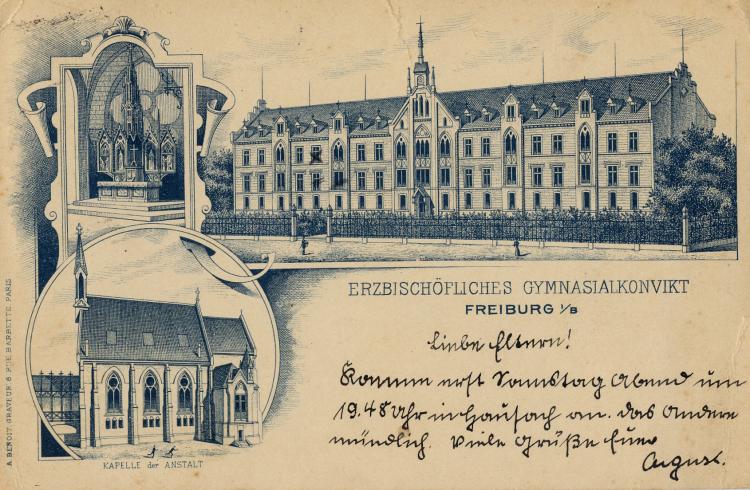 ERZBISCHÖFLICHES GYMNASIALKONVIKT
FREIBURG i/B
Liebe Eltern!
Komme erst Samstag Abend um
19.48 Uhr in Hausach an. Das andere
mündlich. Viele Grüße Euer
August.
KAPELLE der ANSTALT
A. BENOIT, GRAVEUR 8 RUE BARBETTE PARIS